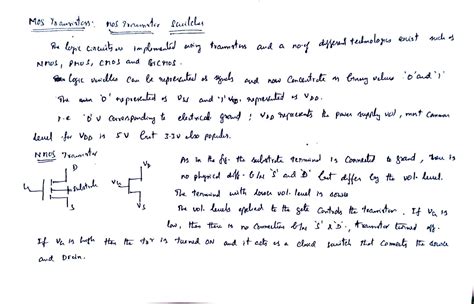 MOS Transistors: MOS Transistor Switches
The logic circuits are implemented using transistors and a no. of different technologies exist such as
NMOS, PMOS, CMOS and BICMOS.
logic variables can be represented as signals and now Concentrate on binary values '0' and '1'
The num '0' represented by VSS and '1' represented by VDD.
i.e '0' V corresponding to electrical ground; VDD represents the power supply vol, most common
level for VDD is 5V but 3.3V also popular.
NMOS Transistor
D
Substrate
S
VD
VG
VS
As in the fig. the substrate terminal is Connected to ground, there is
no physical diff. b/w 'S' and 'D' but differ by the vol. level.
The terminal with lower vol. level is source.
The vol. levels applied to the gate Controls the transistor. If VG is
low, then there is no Connection b/w 'S' & 'D', transistor turned off.
If VG is high then the TSR is turned ON and it acts as a closed switch that Connects the source
and Drain.